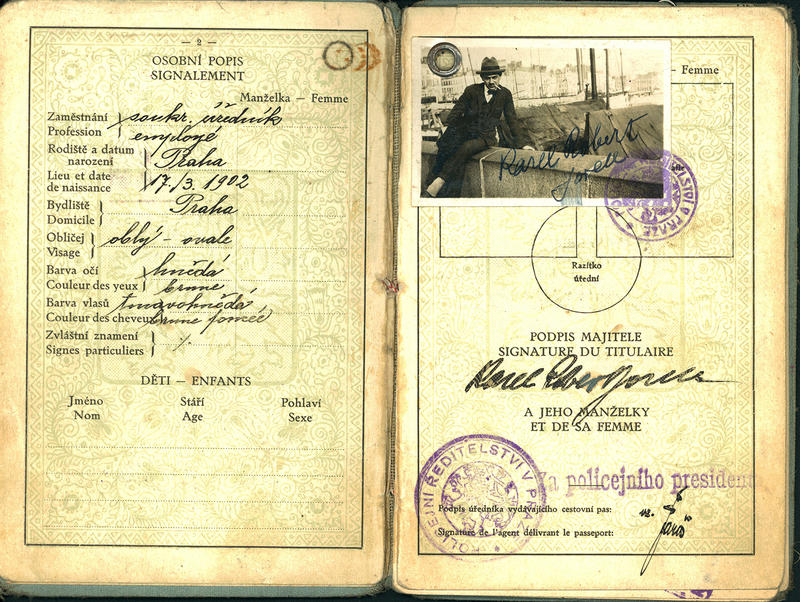 — 2 —
OSOBNÍ POPIS
SIGNALEMENT
Manželka — Femme
Zaměstnání soukr. úředník
Profession employé
Rodiště a datum narození Praha
Lieu et date de naissance 17./3. 1902
Bydliště Praha
Domicile
Obličej oblý - ovale
Visage
Barva očí hnědá
Couleur des yeux brune
Barva vlasů tmavohnědá
Couleur des cheveux brune foncée
Zvláštní znamení
Signes particuliers ·/.
DĚTI — ENFANTS
Jméno Stáří Pohlaví
Nom Age Sexe
— Femme
Karel Robert
Razítko
úřední
PODPIS MAJITELE
SIGNATURE DU TITULAIRE
Karel Robert
A JEHO MANŽELKY
ET DE SA FEMME
POLICEJNÍ ŘEDITELSTVÍ V PRAZE
Za policejního president
Podpis úředníka vydávajícího cestovní pas:
Signature de l'agent délivrant le passeport: